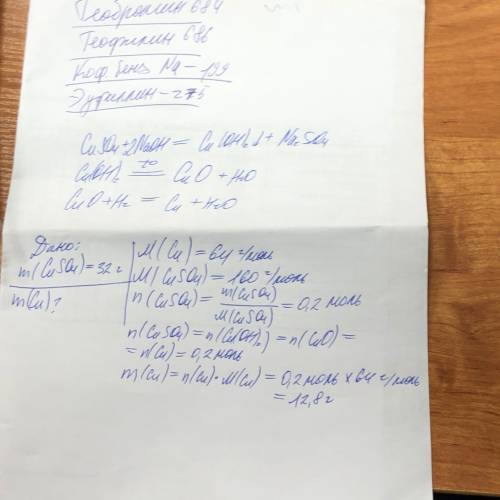 Теобромин 684
Теофиллин 686
Коф бенз Na – 199
Эуфиллин – 275
CuSO4 + 2NaOH = Cu(OH)2↓ + Na2SO4
Cu(OH)2 =t0= CuO + H2O
CuO + H2 = Cu + H2O
Дано:
m(CuSO4) = 32 г
m(Cu)?
M(Cu) = 64 г/моль
M(CuSO4) = 160 г/моль
n(CuSO4) = m(CuSO4)/M(CuSO4) = 0,2 моль
n(CuSO4) = n(Cu(OH)2) = n(CuO) =
= n(Cu) = 0,2 моль
m(Cu) = n(Cu) · M(Cu) = 0,2 моль × 64 г/моль
= 12,8 г